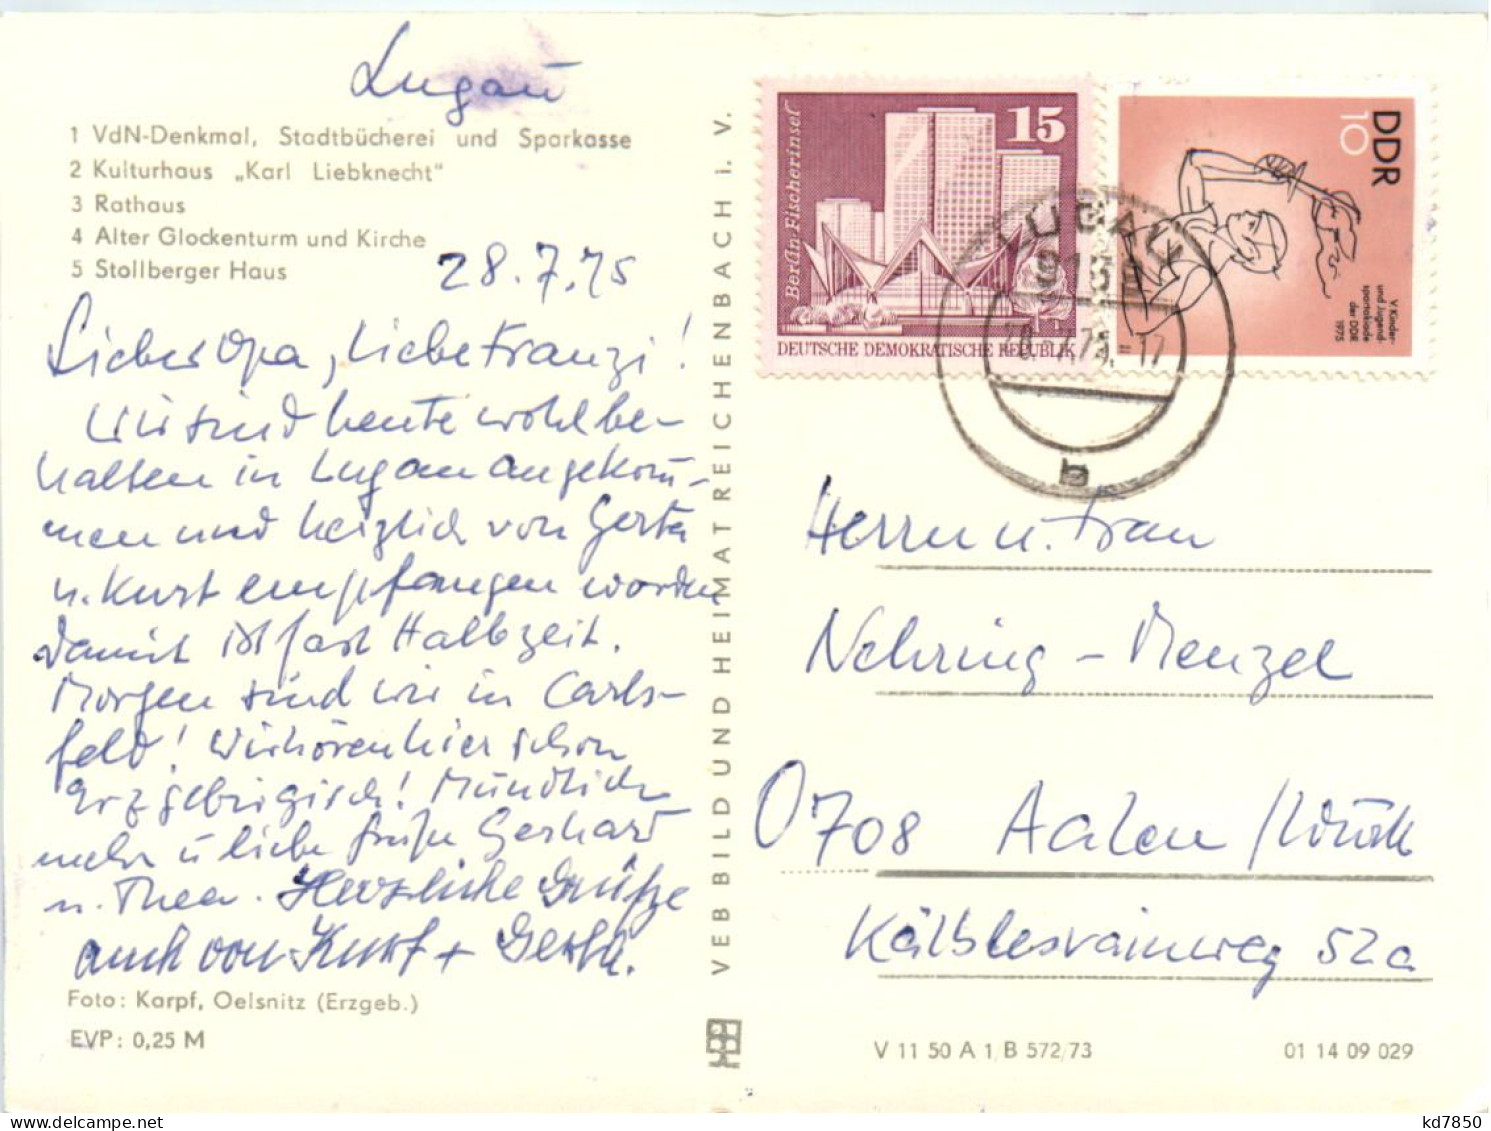 Lugau
1 VdN-Denkmal, Stadtbücherei und Sparkasse
2 Kulturhaus „Karl Liebknecht"
3 Rathaus
4 Alter Glockenturm und Kirche
5 Stollberger Haus
28.7.75
Lieber Opa, liebe Franzi!
Wir sind heute wohlbe-
halten in Lugau angekom-
men und herzlich von Gerta
u. Kurt empfangen worden
Damit ist fast Halbzeit.
Morgen sind wir in Carls-
feld! Wir hören hier schon
Erzgebirgisch! Mündlich
mehr u liebe Grüße Gerhard
u. Thea. Herzliche Grüße
auch von Kurt + Gerta.
Foto: Karpf, Oelsnitz (Erzgeb.)
EVP: 0,25 M
VEB BILD UND HEIMAT REICHENBACH i. V.
15
Berlin-Fischerinsel
DEUTSCHE DEMOKRATISCHE REPUBLIK
DDR
10
V. Kinder-
und Jugend-
spartakiade
der DDR
1975
LUGAU
28.-7.75.-17
b
Herrn u. Frau
Nehring-Menzel
0708 Aalen /Württ
Kälblesrainweg 52a
V 11 50 A 1/B 572/73
01 14 09 029
kd7850